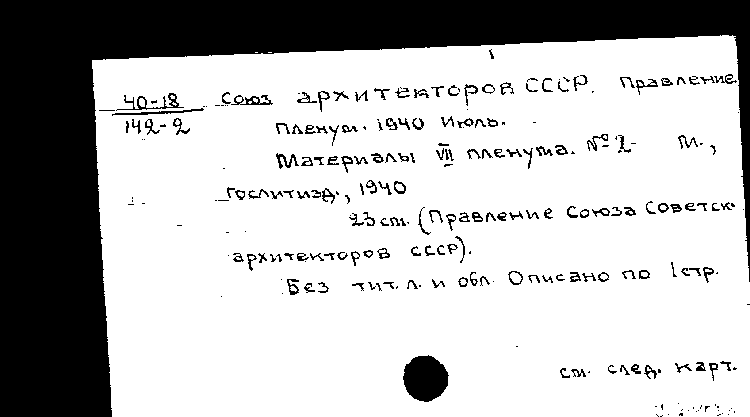 40-18 Союз архитекторов СССР. Правление.
142-2 Пленум. 1940 Июль.
Материалы VII пленума. № 2 М.,
Гослитизд., 1940
23 ст. (Правление Союза Советск.
архитекторов СССР).
Без тит. л. и обл. Описано по 1 стр.
см. след. карт.